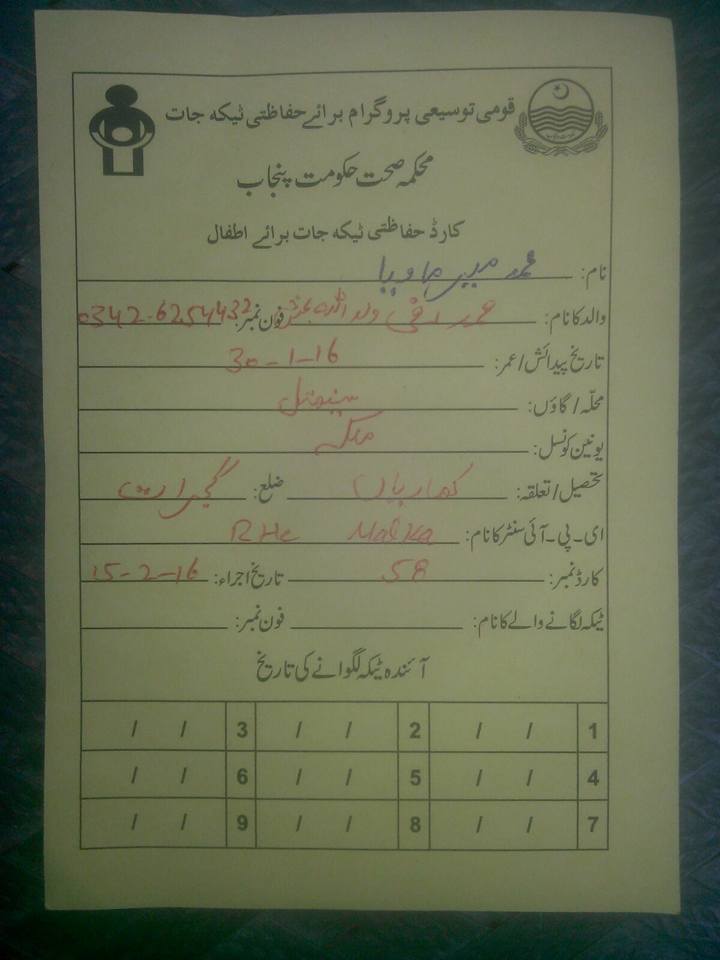 قومی توسیعی پروگرام برائے حفاظتی ٹیکہ جات
محکمہ صحت حکومت پنجاب
کارڈ حفاظتی ٹیکہ جات برائے اطفال
نام: محمد
والد کا نام: محمد ولد اللہ فون نمبر: 0342-6254432
تاریخ پیدائش/عمر: 30-1-16
محلّہ/گاؤں:
یونین کونسل: ملکہ
تحصیل/تعلقہ: کھاریاں ضلع: گجرات
ای۔پی۔آئی سنٹر کا نام: RHC Malka
کارڈ نمبر: 58 تاریخ اجراء: 15-2-16
ٹیکہ لگانے والے کا نام: فون نمبر:
آئندہ ٹیکہ لگوانے کی تاریخ
1 / / 2 / / 3 / /
4 / / 5 / / 6 / /
7 / / 8 / / 9 / /